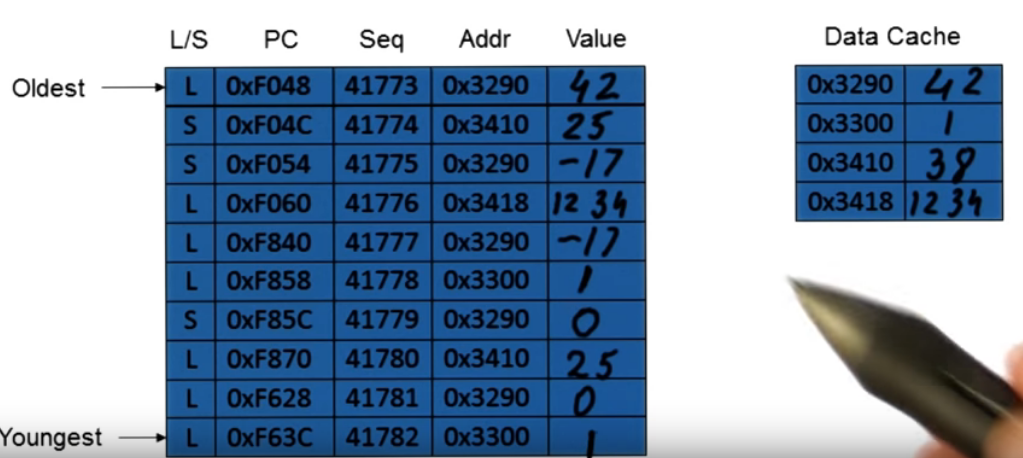 L/S PC Seq Addr Value
Data Cache
Oldest L 0xF048 41773 0x3290 42
S 0xF04C 41774 0x3410 25
S 0xF054 41775 0x3290 -17
L 0xF060 41776 0x3418 1234
L 0xF840 41777 0x3290 -17
L 0xF858 41778 0x3300 1
S 0xF85C 41779 0x3290 0
L 0xF870 41780 0x3410 25
L 0xF628 41781 0x3290 0
Youngest L 0xF63C 41782 0x3300 1
0x3290 42
0x3300 1
0x3410 38
0x3418 1234